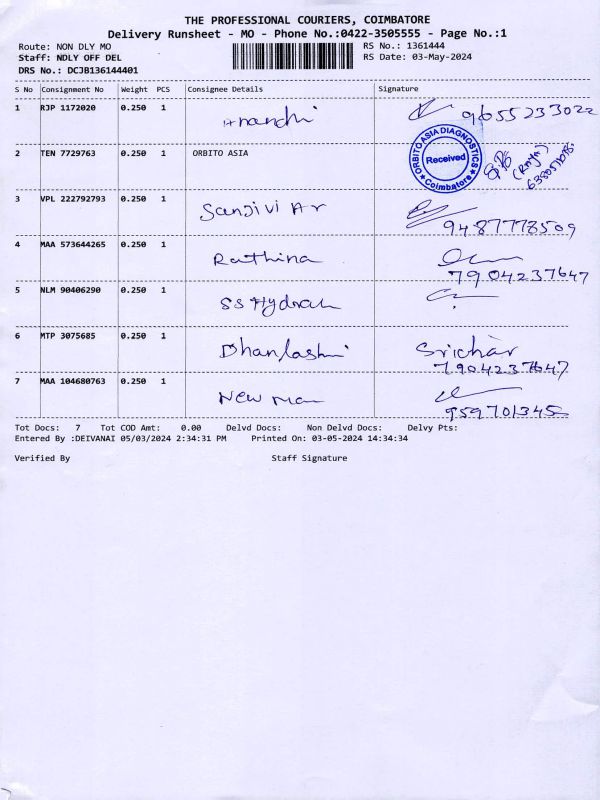 THE PROFESSIONAL COURIERS, COIMBATORE
Delivery Runsheet - MO - Phone No.:0422-3505555 - Page No.:1
Route: NON DLY MO RS No.: 1361444
Staff: NDLY OFF DEL RS Date: 03-May-2024
DRS No.: DCJB136144401
S No Consignment No Weight PCS Consignee Details Signature
1 RJP 1172020 0.250 1 Anandhi 9655233022
2 TEN 7729763 0.250 1 ORBITO ASIA
ORBITO ASIA DIAGNOSTICS
Received
Coimbatore
3 VPL 222792793 0.250 1 Sanjivi Ar 9487778509
4 MAA 573644265 0.250 1 Rathina 7904237647
5 NLM 90406290 0.250 1 SS Hydrau
6 MTP 3075685 0.250 1 Dhanlashmi Srichar
7904237647
7 MAA 104680763 0.250 1 New man 959701345
Tot Docs: 7 Tot COD Amt: 0.00 Delvd Docs: Non Delvd Docs: Delvy Pts:
Entered By :DEIVANAI 05/03/2024 2:34:31 PM Printed On: 03-05-2024 14:34:34
Verified By Staff Signature